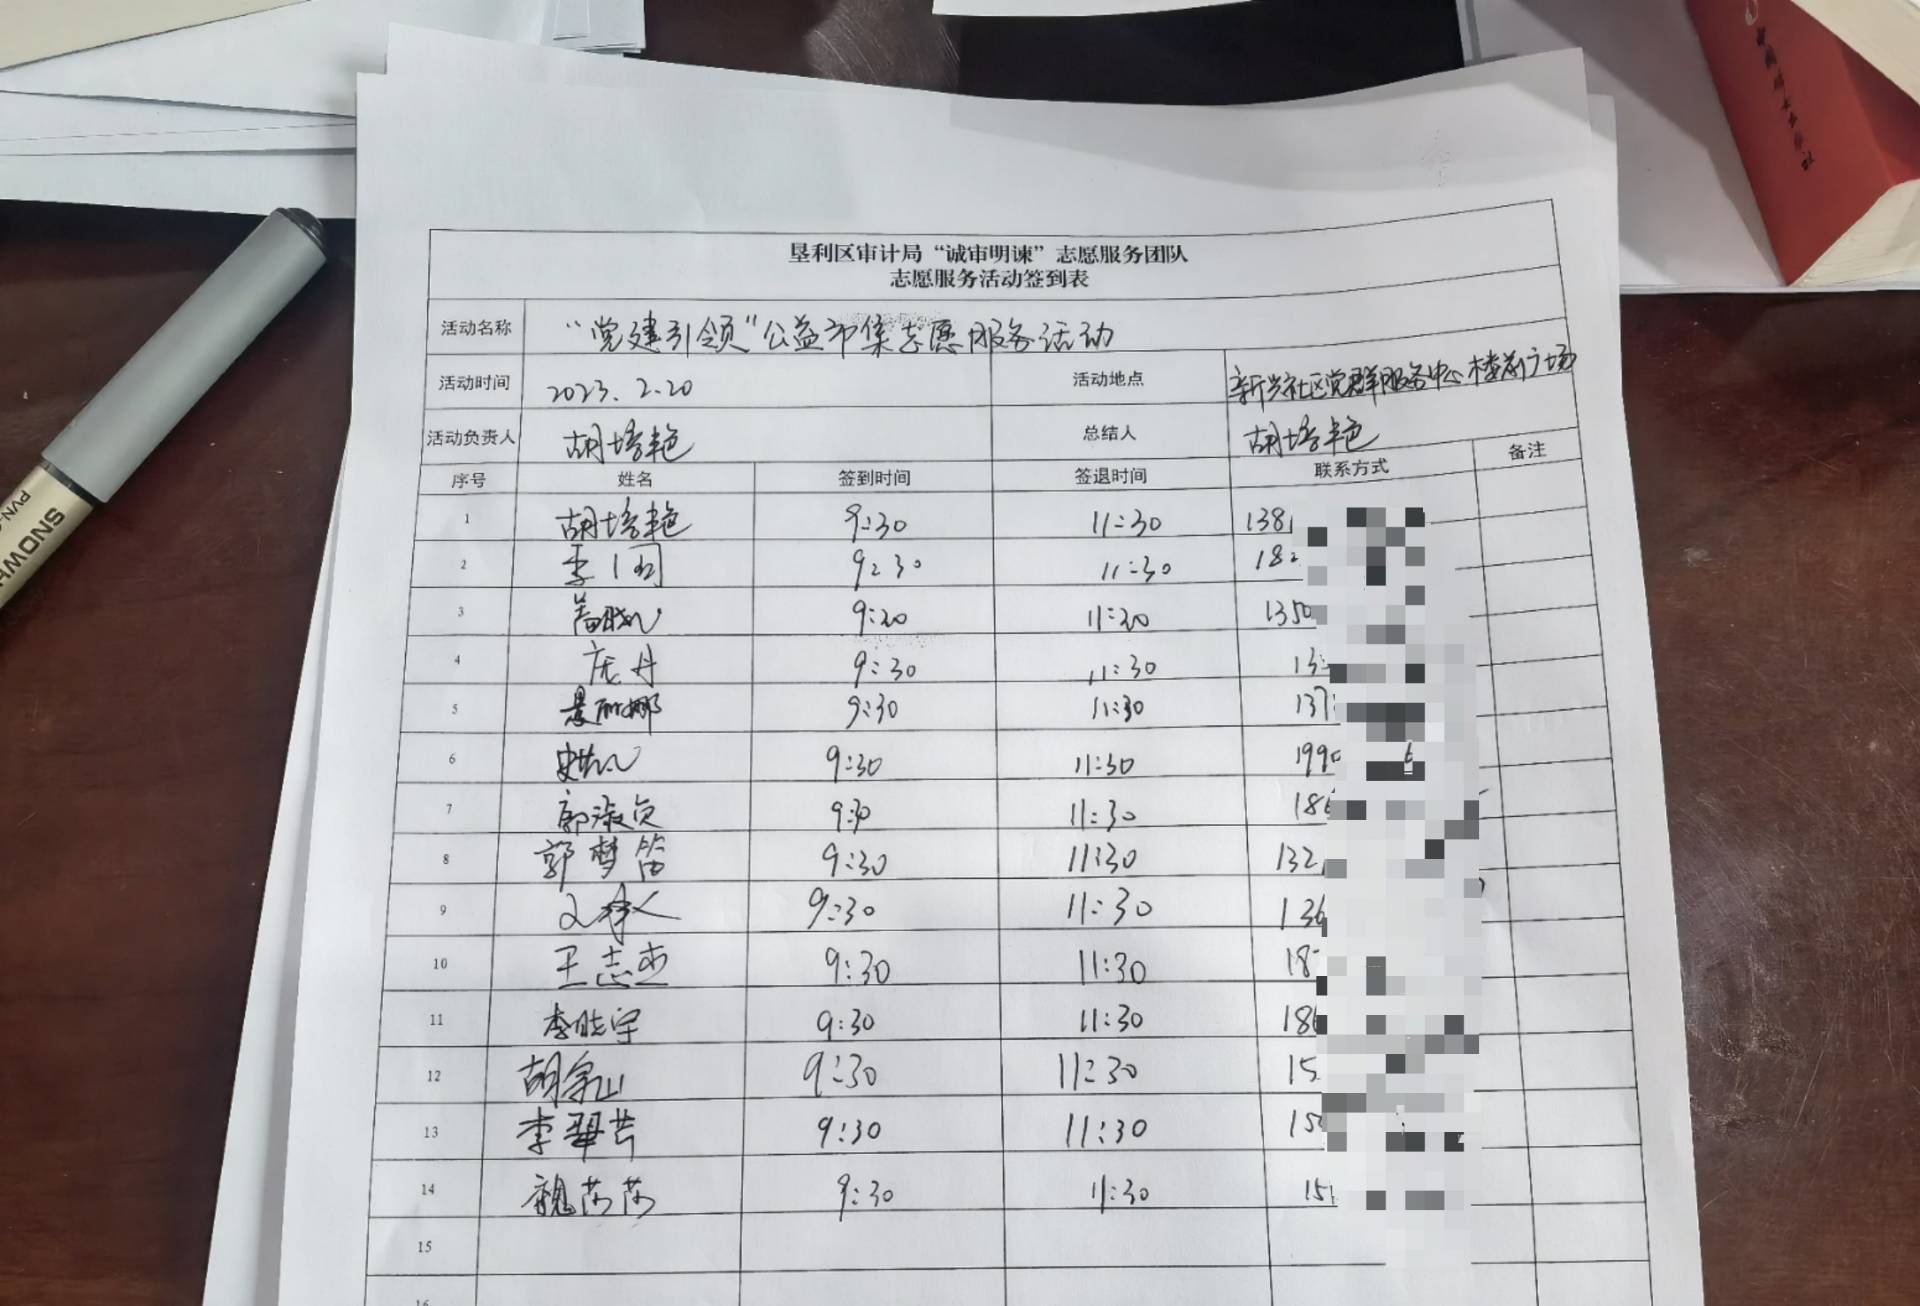 中国方正出版社
SNOWM
PVN-
垦利区审计局“诚审明谏”志愿服务团队
志愿服务活动签到表
活动名称 “党建引领”公益市集志愿服务活动
活动时间 2023.2.20 活动地点 新兴社区党群服务中心楼前广场
活动负责人 胡培艳 总结人 胡培艳
序号 姓名 签到时间 签退时间 联系方式 备注
1 胡培艳 9:30 11:30 138
2 李 9:30 11:30 182
3 9:30 11:30 1350
4 庞丹 9:30 11:30 13
5 景丽娜 9:30 11:30 137
6 9:30 11:30 199 6
7 郭淑贞 9:30 11:30 186
8 郭梦笛 9:30 11:30 132
9 9:30 11:30 136
10 王志杰 9:30 11:30 18
11 李胜宇 9:30 11:30 186
12 胡 9:30 11:30 15
13 李翠芸 9:30 11:30 15
14 魏莎莎 9:30 11:30 151
15
16